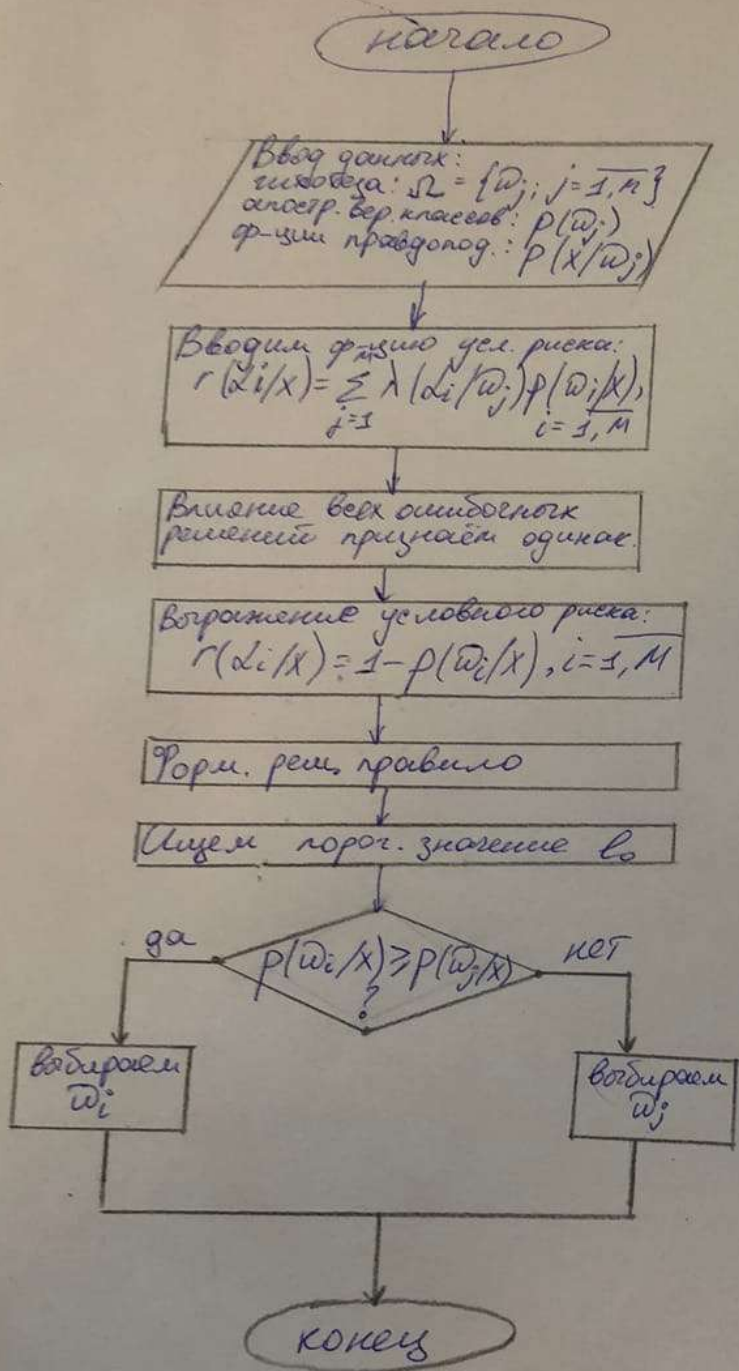 начало
Ввод данных:
гипотеза: Ω = {ω̅j; j = 1,M}
апостр. вер. классов: p(ω̅j)
ф-ции правдопод.: p(x/ω̅j)
Вводим ф-цию усл. риска:
r(αi/x) = Σ(j=1..M) λ(αi/ω̅j)p(ω̅i/x),
i = 1,M
Влияние всех ошибочных
решений признаём одинак.
Выражение условного риска:
r(αi/x) = 1 - p(ω̅i/x), i = 1,M
Форм. реш. правило
Ищем порог. значение l₀
p(ω̅i/x) ≥ p(ω̅j/x)
?
да
нет
выбираем
ω̅i
выбираем
ω̅j
конец